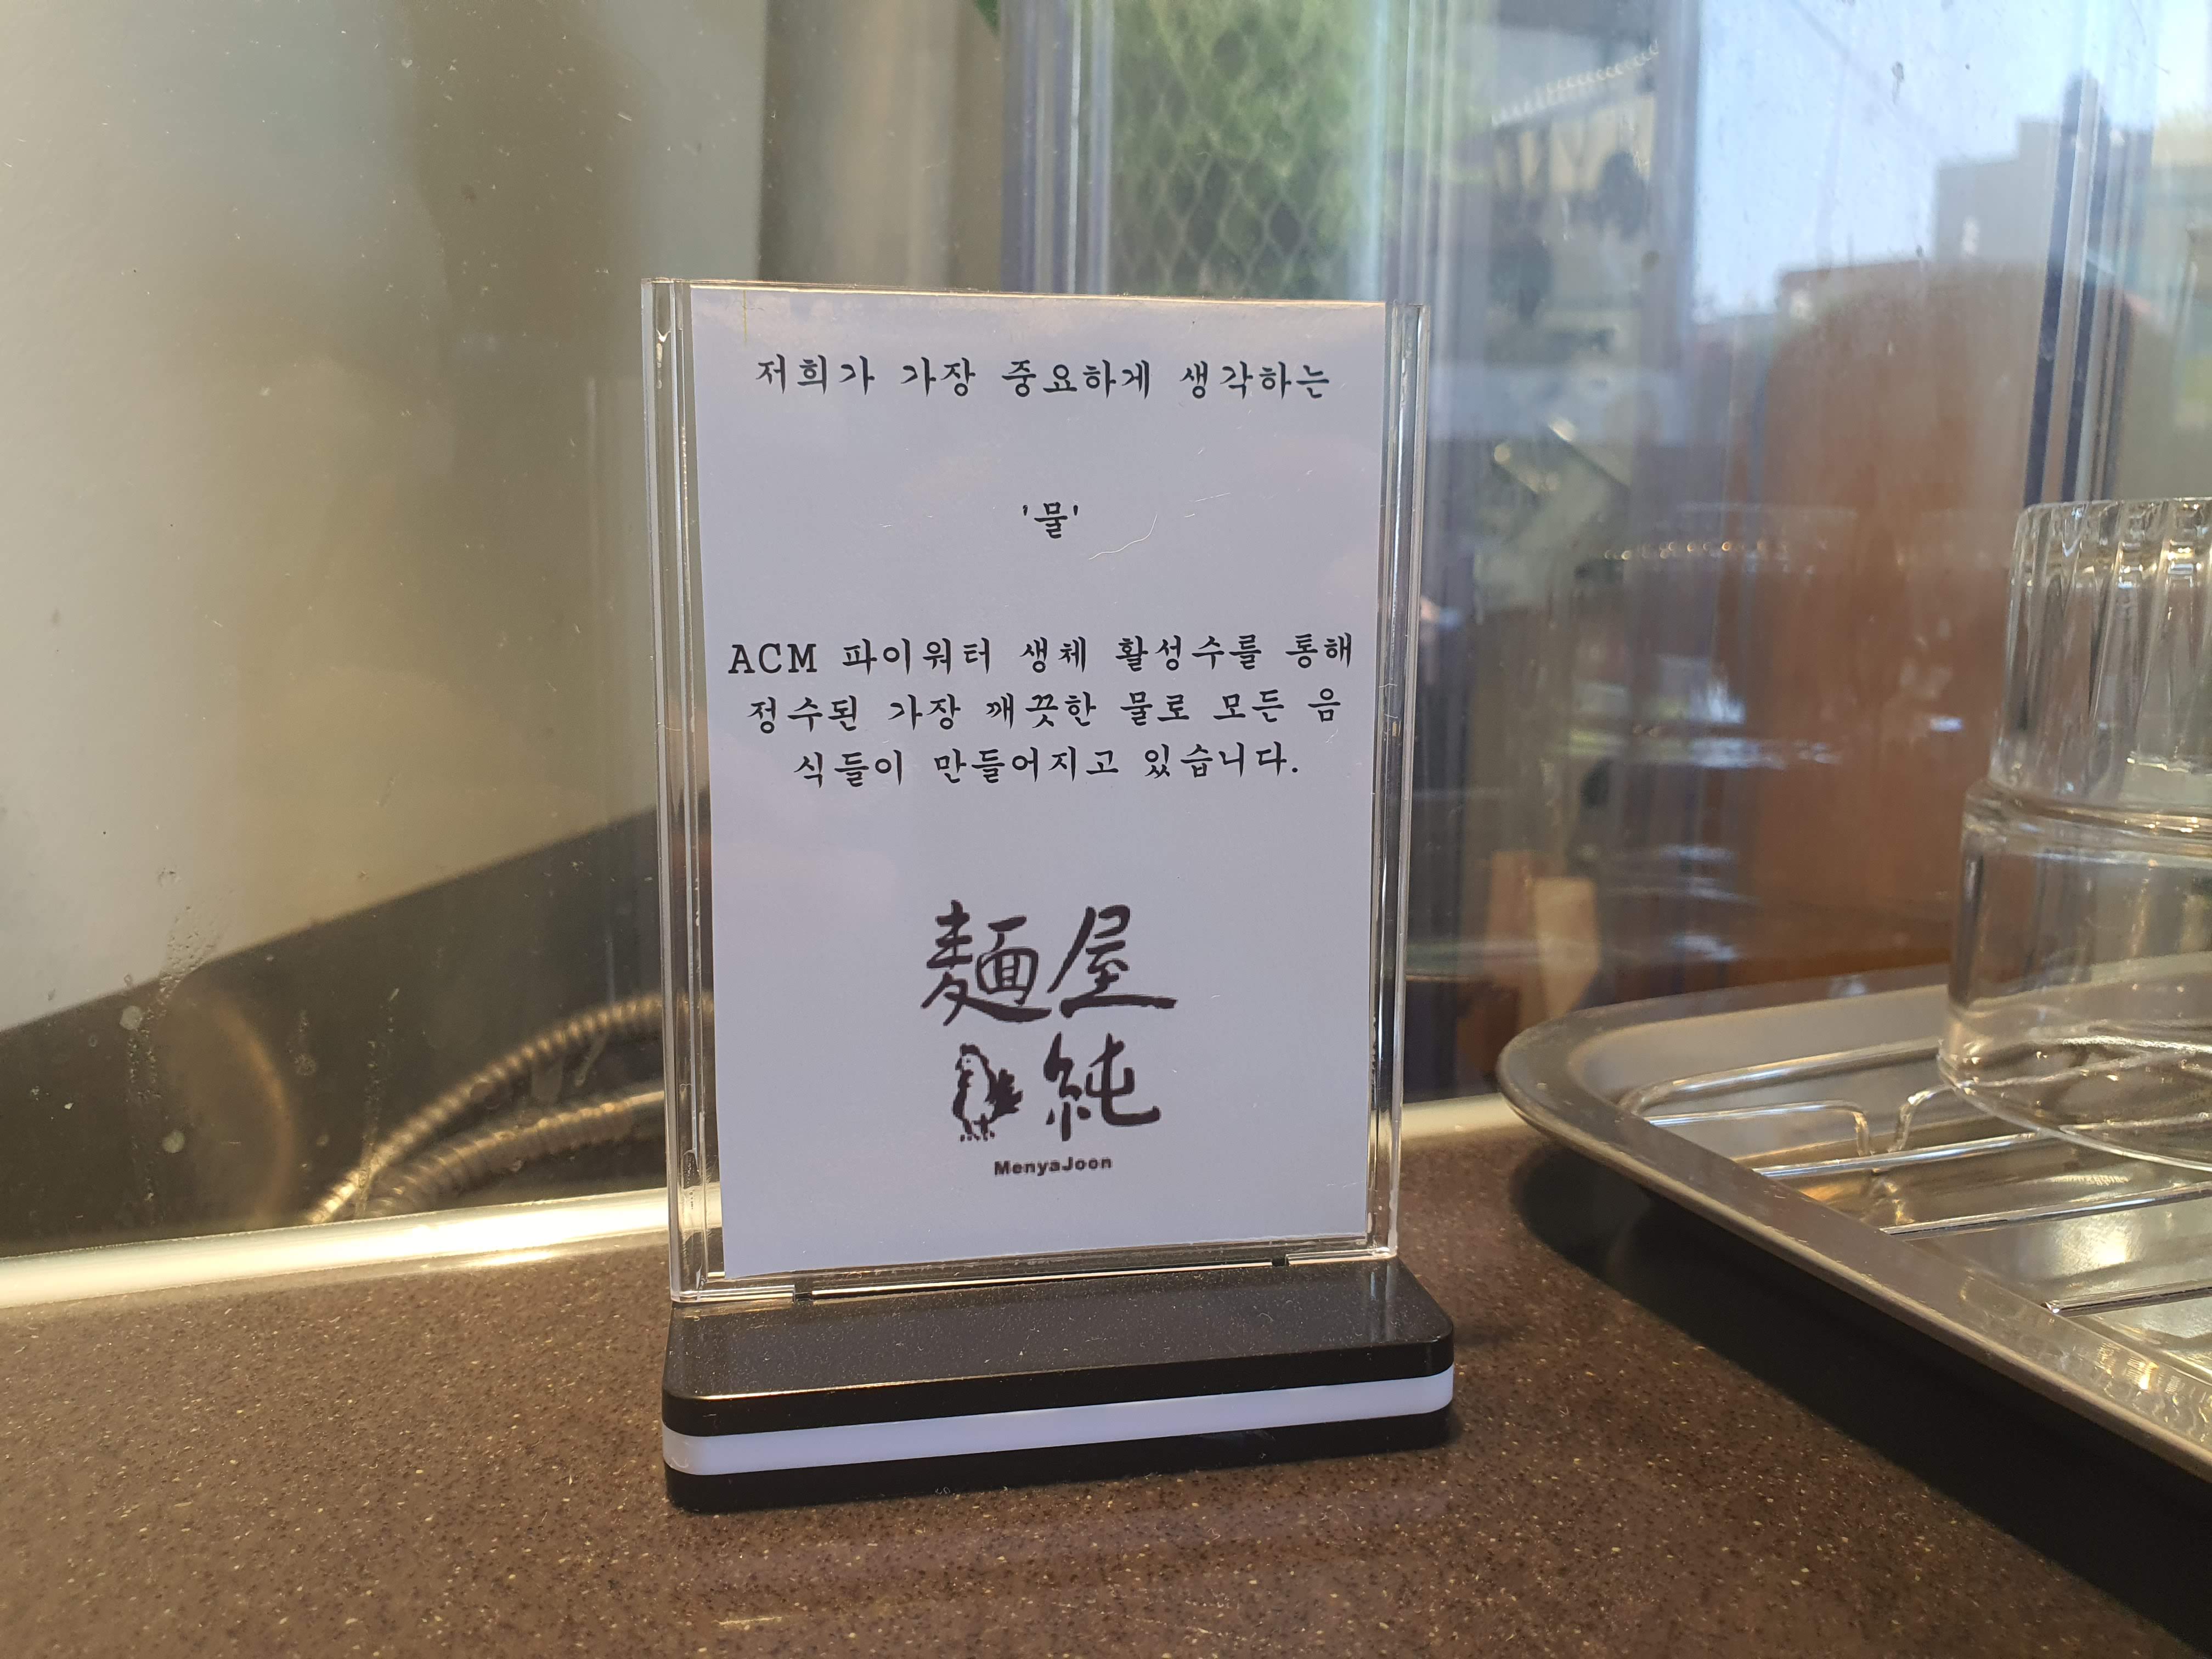 저희가 가장 중요하게 생각하는
'물'
ACM 파이워터 생체 활성수를 통해
정수된 가장 깨끗한 물로 모든 음
식들이 만들어지고 있습니다.
麺屋
純
MenyaJoon